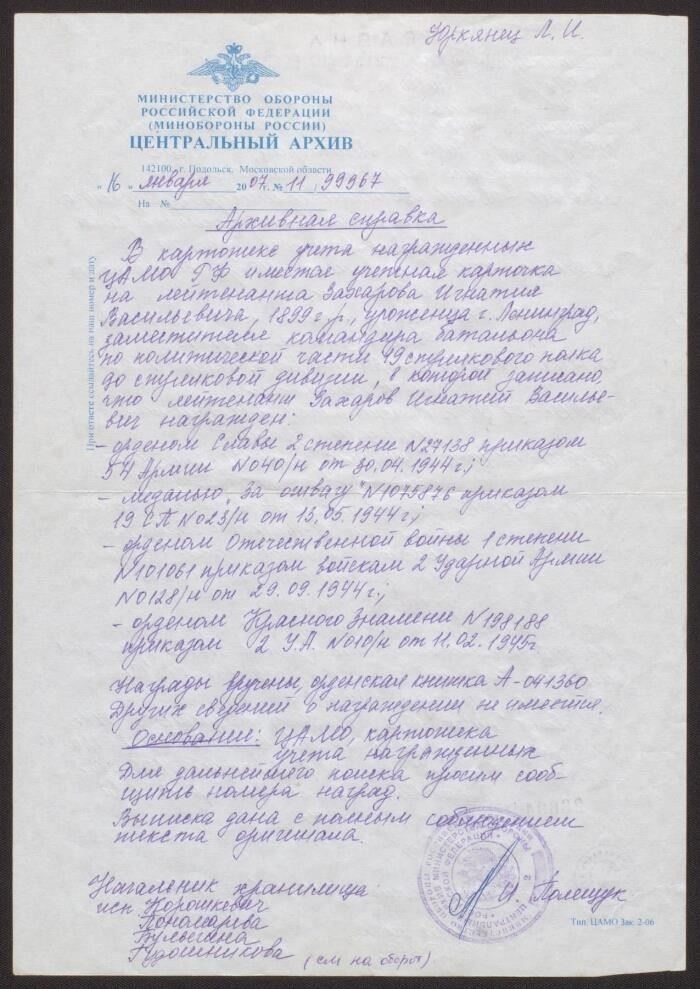 Юркянец Л. И.
МИНИСТЕРСТВО ОБОРОНЫ
РОССИЙСКОЙ ФЕДЕРАЦИИ
(МИНОБОРОНЫ РОССИИ)
ЦЕНТРАЛЬНЫЙ АРХИВ
142100, г. Подольск, Московской области
"16" января 2007. № 11/99967
На №
При ответе ссылайтесь на наш номер и дату
Архивная справка
В картотеке учета награжденных
ЦАМО РФ имеется учетная карточка
на лейтенанта Захарова Игнатия
Васильевича, 1899 г.р., уроженца г. Ленинград,
заместителя командира батальона
по политической части 19 стрелкового полка
до стрелковой дивизии, в которой записано,
что лейтенант Захаров Игнатий Василье-
вич награжден:
– орденом Славы 2 степени N27138 приказом
54 Армии N040/н от 30.04.1944 г.;
– медалью "За отвагу" N1075876 приказом
19 СП N023/н от 13.05.1944 г.;
– орденом Отечественной войны 1 степени
N101061 приказом войскам 2 Ударной Армии
N0128/н от 29.09.1944 г.;
– орденом Красного Знамени N198188
приказом 2 У.А. N010/н от 11.02.1945г
Награды вручены, орденская книжка А-041360
Других сведений о награждении не имеется.
Основание: ЦАМО, картотека
учета награжденных
Для дальнейшего поиска просим сооб-
щить номера наград.
Выписка дана с полным соблюдением
текста оригинала.
Начальник хранилища И. Полещук
исп. Корошкевич
Пономарева
Булыгина
(см на оборот)
Тип. ЦАМО Зак. 2-06